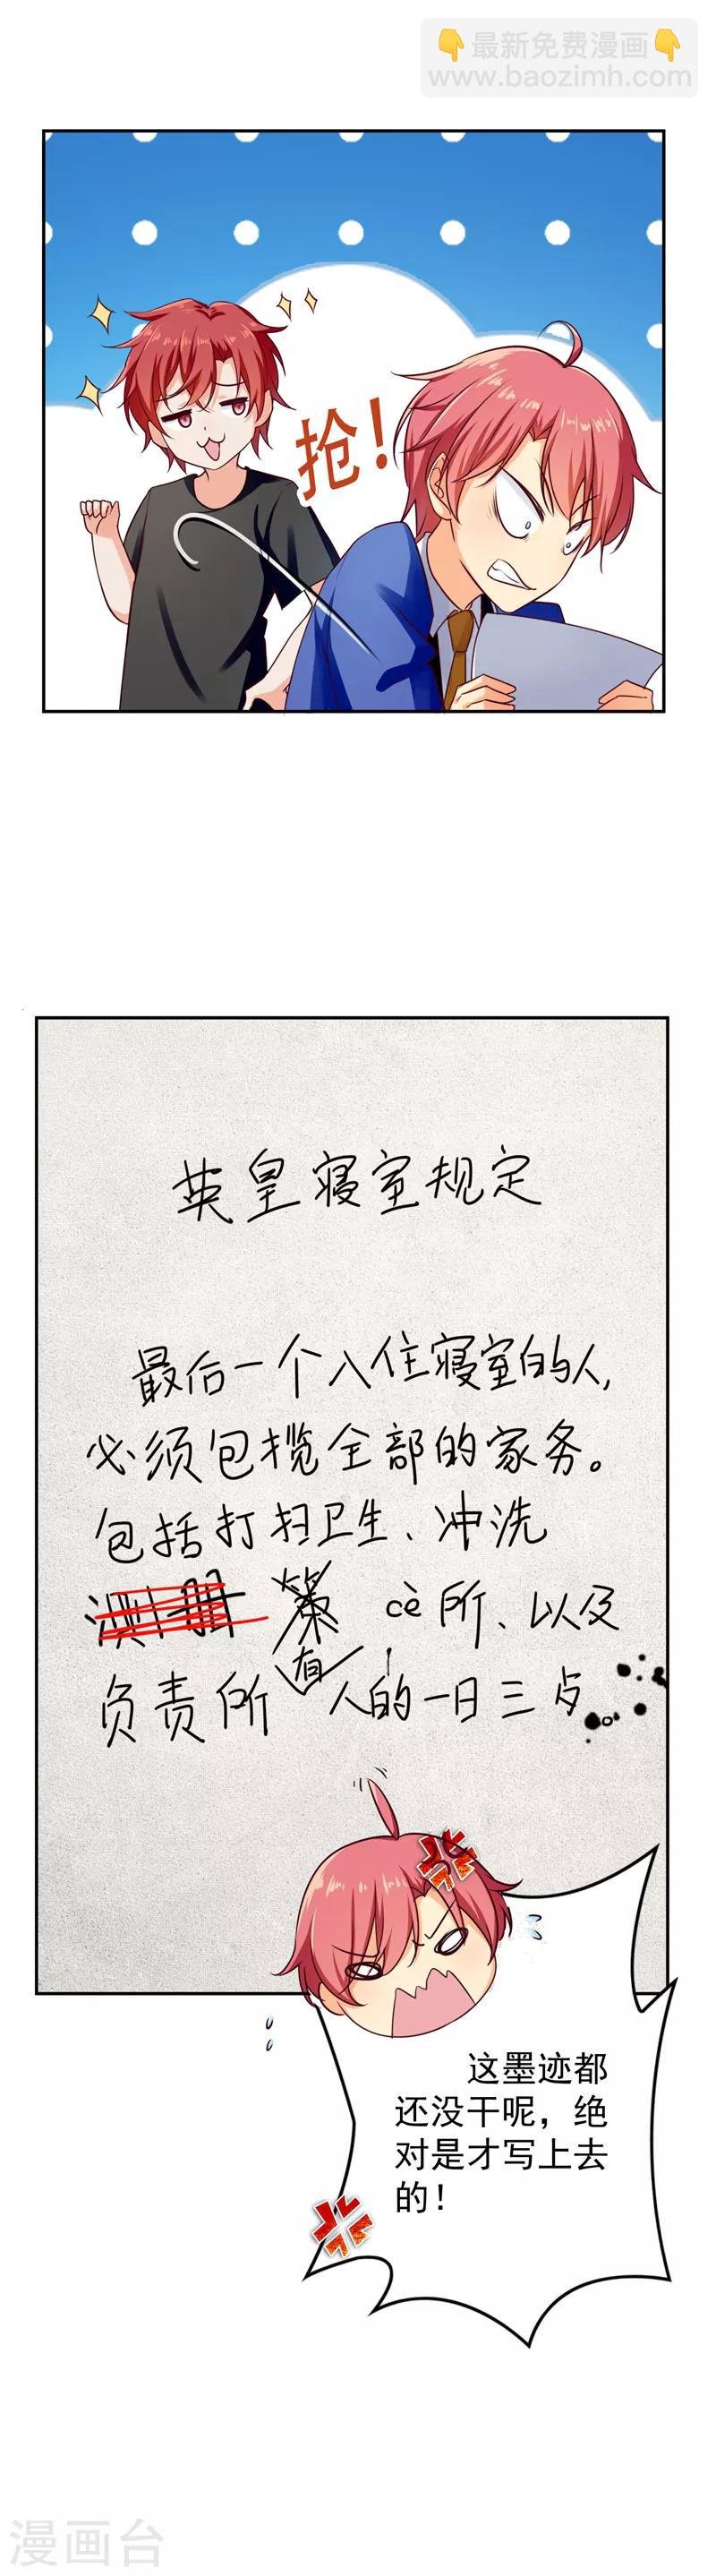 👇最新免费漫画👇
www.baozimh.com
抢！
英皇寝室规定
最后一个入住寝室的人,
必须包揽全部的家务。
包括打扫卫生、冲洗
cè所、以及
负责所有人的一日三
这墨迹都
还没干呢，绝
对是才写上去
的！
漫画台